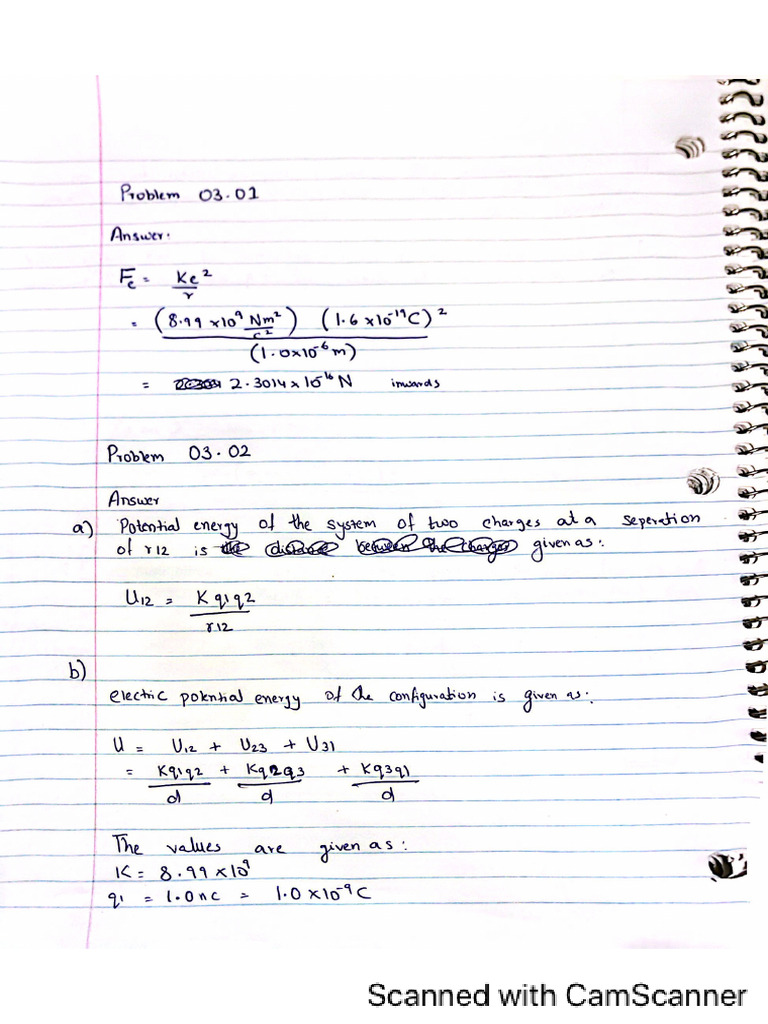 Problem 03.01
Answer:
Fe = Ke²/r
= (8.99 x10⁹ Nm²/C²) (1.6 x10⁻¹⁹C)² / (1.0x10⁻⁶m)
= 2.3014 x 10⁻¹⁶ N inwards
Problem 03.02
Answer
a) Potential energy of the system of two charges at a seperation
of r12 is given as:
U12 = K q1q2 / r12
b)
electric potential energy of the configuration is given as:
U = U12 + U23 + U31
= Kq1q2/d + Kq2q3/d + Kq3q1/d
The values are given as:
K = 8.99 x10⁹
q1 = 1.0nc = 1.0 x10⁻⁹C
Scanned with CamScanner